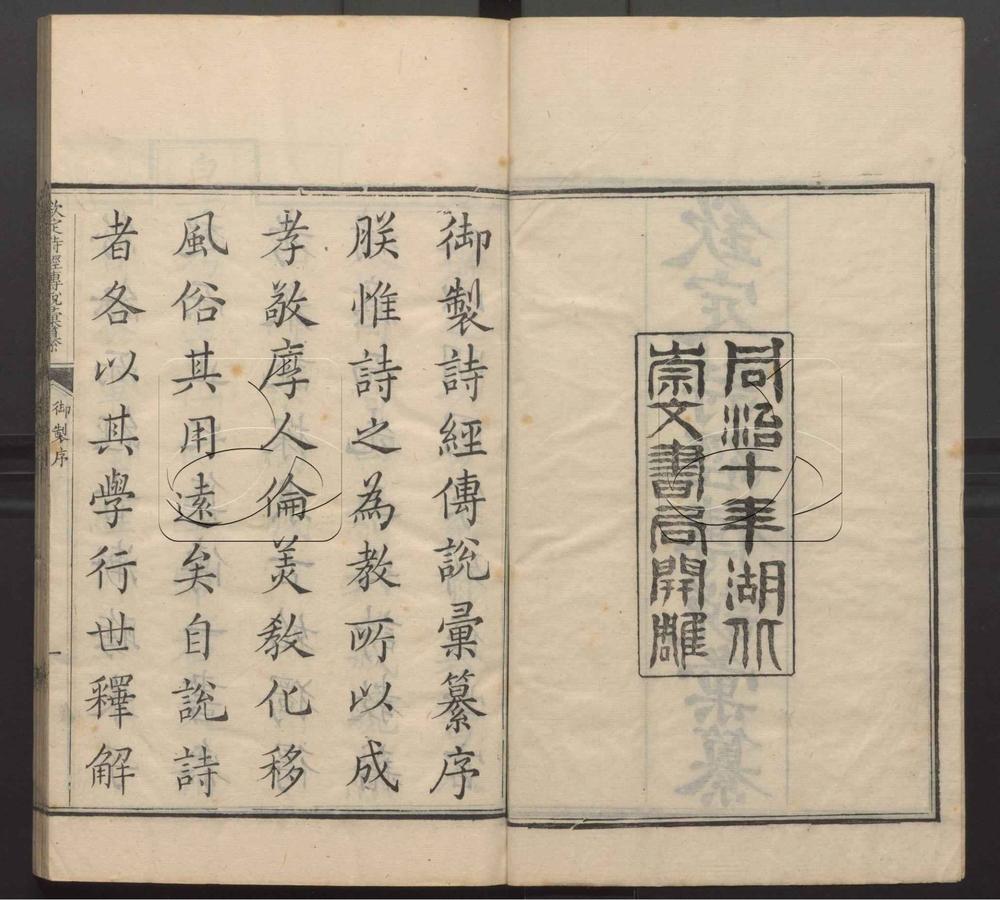 同治十年湖北
崇文書局開雕
御製詩經傳說彙纂序
朕惟詩之為教所以成
孝敬厚人倫美教化移
風俗其用遠矣自說詩
者各以其學行世釋解
欽定詩經傳說彙纂
御製序
一